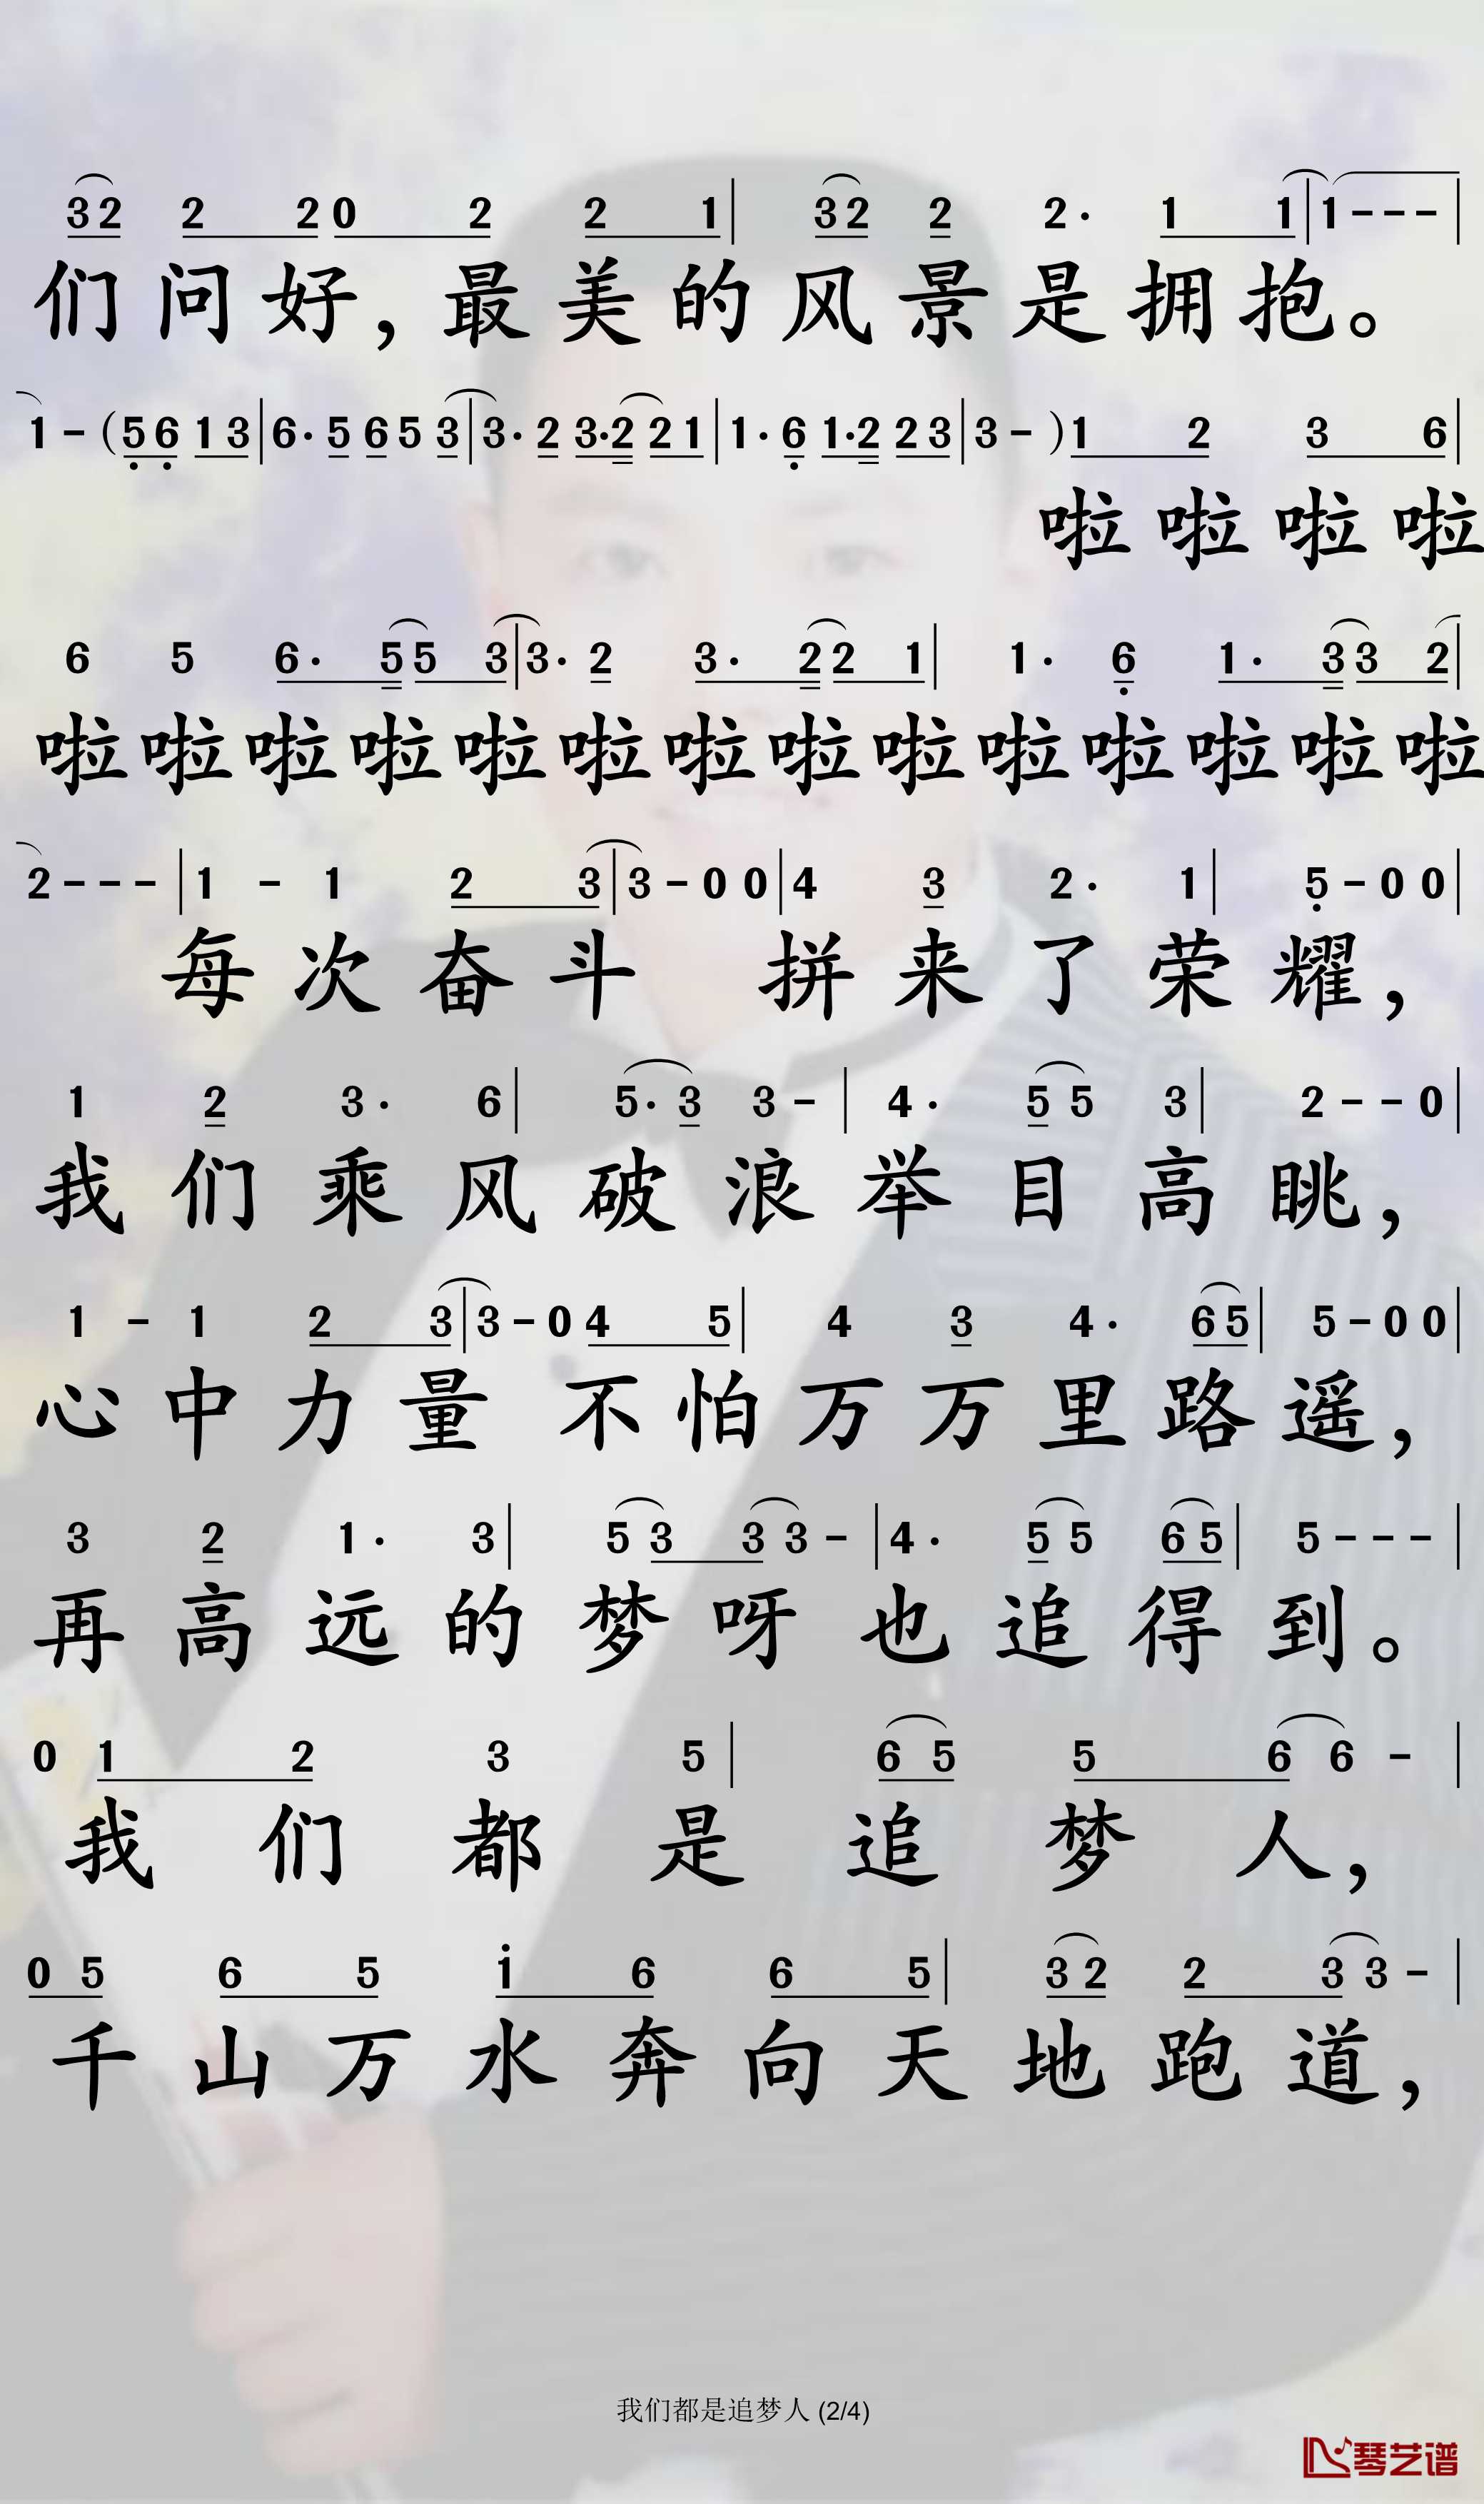 32 2 2 0 2 2 1 | 32 2 2· 1 1 | 1 - - - |
们问好，最美的风景是拥抱。
1 - （5 6 1 3 | 6· 5 6 5 3 | 3· 2 3·2 2 1 | 1· 6 1·2 2 3 | 3 - ）1 2 3 6 |
啦啦啦啦
6 5 6· 5 5 3 | 3· 2 3· 2 2 1 | 1· 6 1· 3 3 2 |
啦啦啦啦啦啦啦啦啦啦啦啦啦啦
2 - - - | 1 - 1 2 3 | 3 - 0 0 | 4 3 2· 1 | 5 - 0 0 |
每次奋斗 拼来了荣耀，
1 2 3· 6 | 5· 3 3 - | 4· 5 5 3 | 2 - - 0 |
我们乘风破浪举目高眺，
1 - 1 2 3 | 3 - 0 4 5 | 4 3 4· 6 5 | 5 - 0 0 |
心中力量 不怕万万里路遥，
3 2 1· 3 | 5 3 3 3 - | 4· 5 5 6 5 | 5 - - - |
再高远的梦呀也追得到。
0 1 2 3 5 | 6 5 5 6 6 - |
我们都是追梦人，
0 5 6 5 i 6 6 5 | 3 2 2 3 3 - |
千山万水奔向天地跑道，
我们都是追梦人 (2/4)
琴艺谱